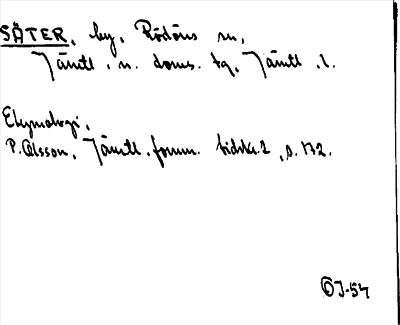 SÄTER, by, Rödöns sn,
Jämtl. n. doms. tg, Jämtl. l.
Etymologi,
P. Olsson, Jämtl. fornm. tidskr. 2, s. 172.
OJ-54